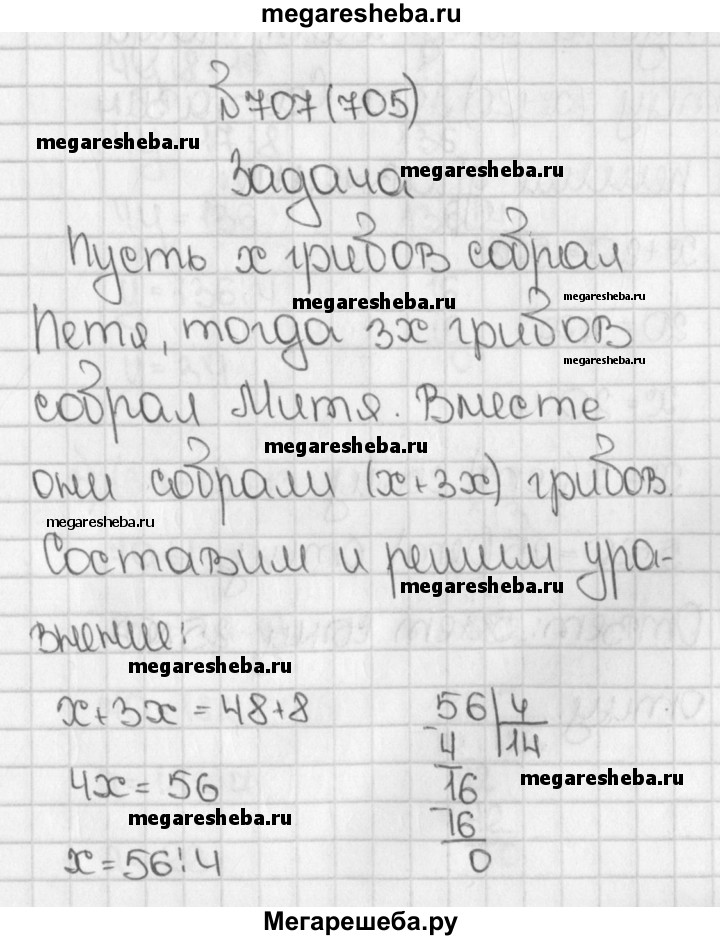 megaresheba.ru
№707(705)
megaresheba.ru
Задача megaresheba.ru
Пусть x грибов собрал
megaresheba.ru megaresheba.ru
Петя, тогда 3x грибов
megaresheba.ru
собрал Митя. Вместе
megaresheba.ru
они собрали (x+3x) грибов.
megaresheba.ru
Составим и решим ура-
megaresheba.ru
внение:
megaresheba.ru
x+3x=48+8 56 | 4
4 14
4x=56 16 megaresheba.ru
megaresheba.ru 16
x=56:4 0
Мегарешеба.ру